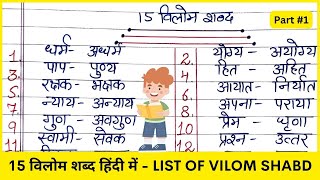 15 विलोम शब्द
Part #1
1. धर्म - अधर्म 2. योग्य - अयोग्य
3. पाप - पुण्य 4. हित - अहित
5. रक्षक - भक्षक 6. आयात - निर्यात
7. न्याय - अन्याय 8. अपना - पराया
9. गुण - अवगुण 10. प्रेम - घृणा
11. स्वामी - सेवक 12. प्रश्न - उत्तर
15 विलोम शब्द हिंदी में - LIST OF VILOM SHABD